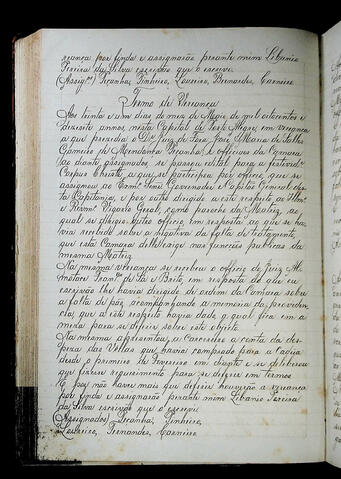 reança por finda e assignarão perante mim Libanio
Pereira da Silva escrivão que o escrevi
(Assig.os) Peçanha, Pinheiro, Loureiro, Bernardes, Carneiro
Termo de Vereança
Aos trinta e um dias do mez de Maio de mil oitocentos e
dezoito annos, nesta Capital de Porto Alegre, em vereança
a que presidio o Dr. Juiz de Fora José Maria de Salles
Gameiro de Mendonça Peçanha, e Officiaes da Camara
ao diante assignados, se passou edital para a festivid.e
Corpus Christi, e que se participou por officio, que se
assignou ao Exmo. Senr. Governador e Capitão General desta
Capitania, e por outro dirigido a este respeito ao Illmo.
e Revmo. Vigario Geral, como parocho da Matriz, ao
qual se dirigio outro officio em resposta ao que se ha-
via recebido sobre a negativa da falta de tratamento,
que esta Camara lhe exige nas funcções publicas da
mesma Matriz
Na mesma vereança se recebeu o officio do Juiz Al-
motacé Fran.co de Sá e Brito, em resposta do que eu
escrivão lhe havia dirigido de ordem da Camara sobre
a falta de pão, acompanhando a memoria da providen-
cia, que a este respeito havia dado, a qual fica em a
meda para se deferir sobre este objecto.
Na mesma apresentou, a carcereiro a conta da des-
peza das vellas que havia comprado para a cadeia
desde o primeiro de Fevereiro em diante e se deliberou
que fizesse requerimento para se deferir em termos
E por não haver mais que deferir houverão a vereança
por finda e assignarão perante mim Libanio Pereira
da Silva escrivão que o escrevi
(Assignados) Peçanha, Pinheiro,
Loureiro, Fernandes, Carneiro